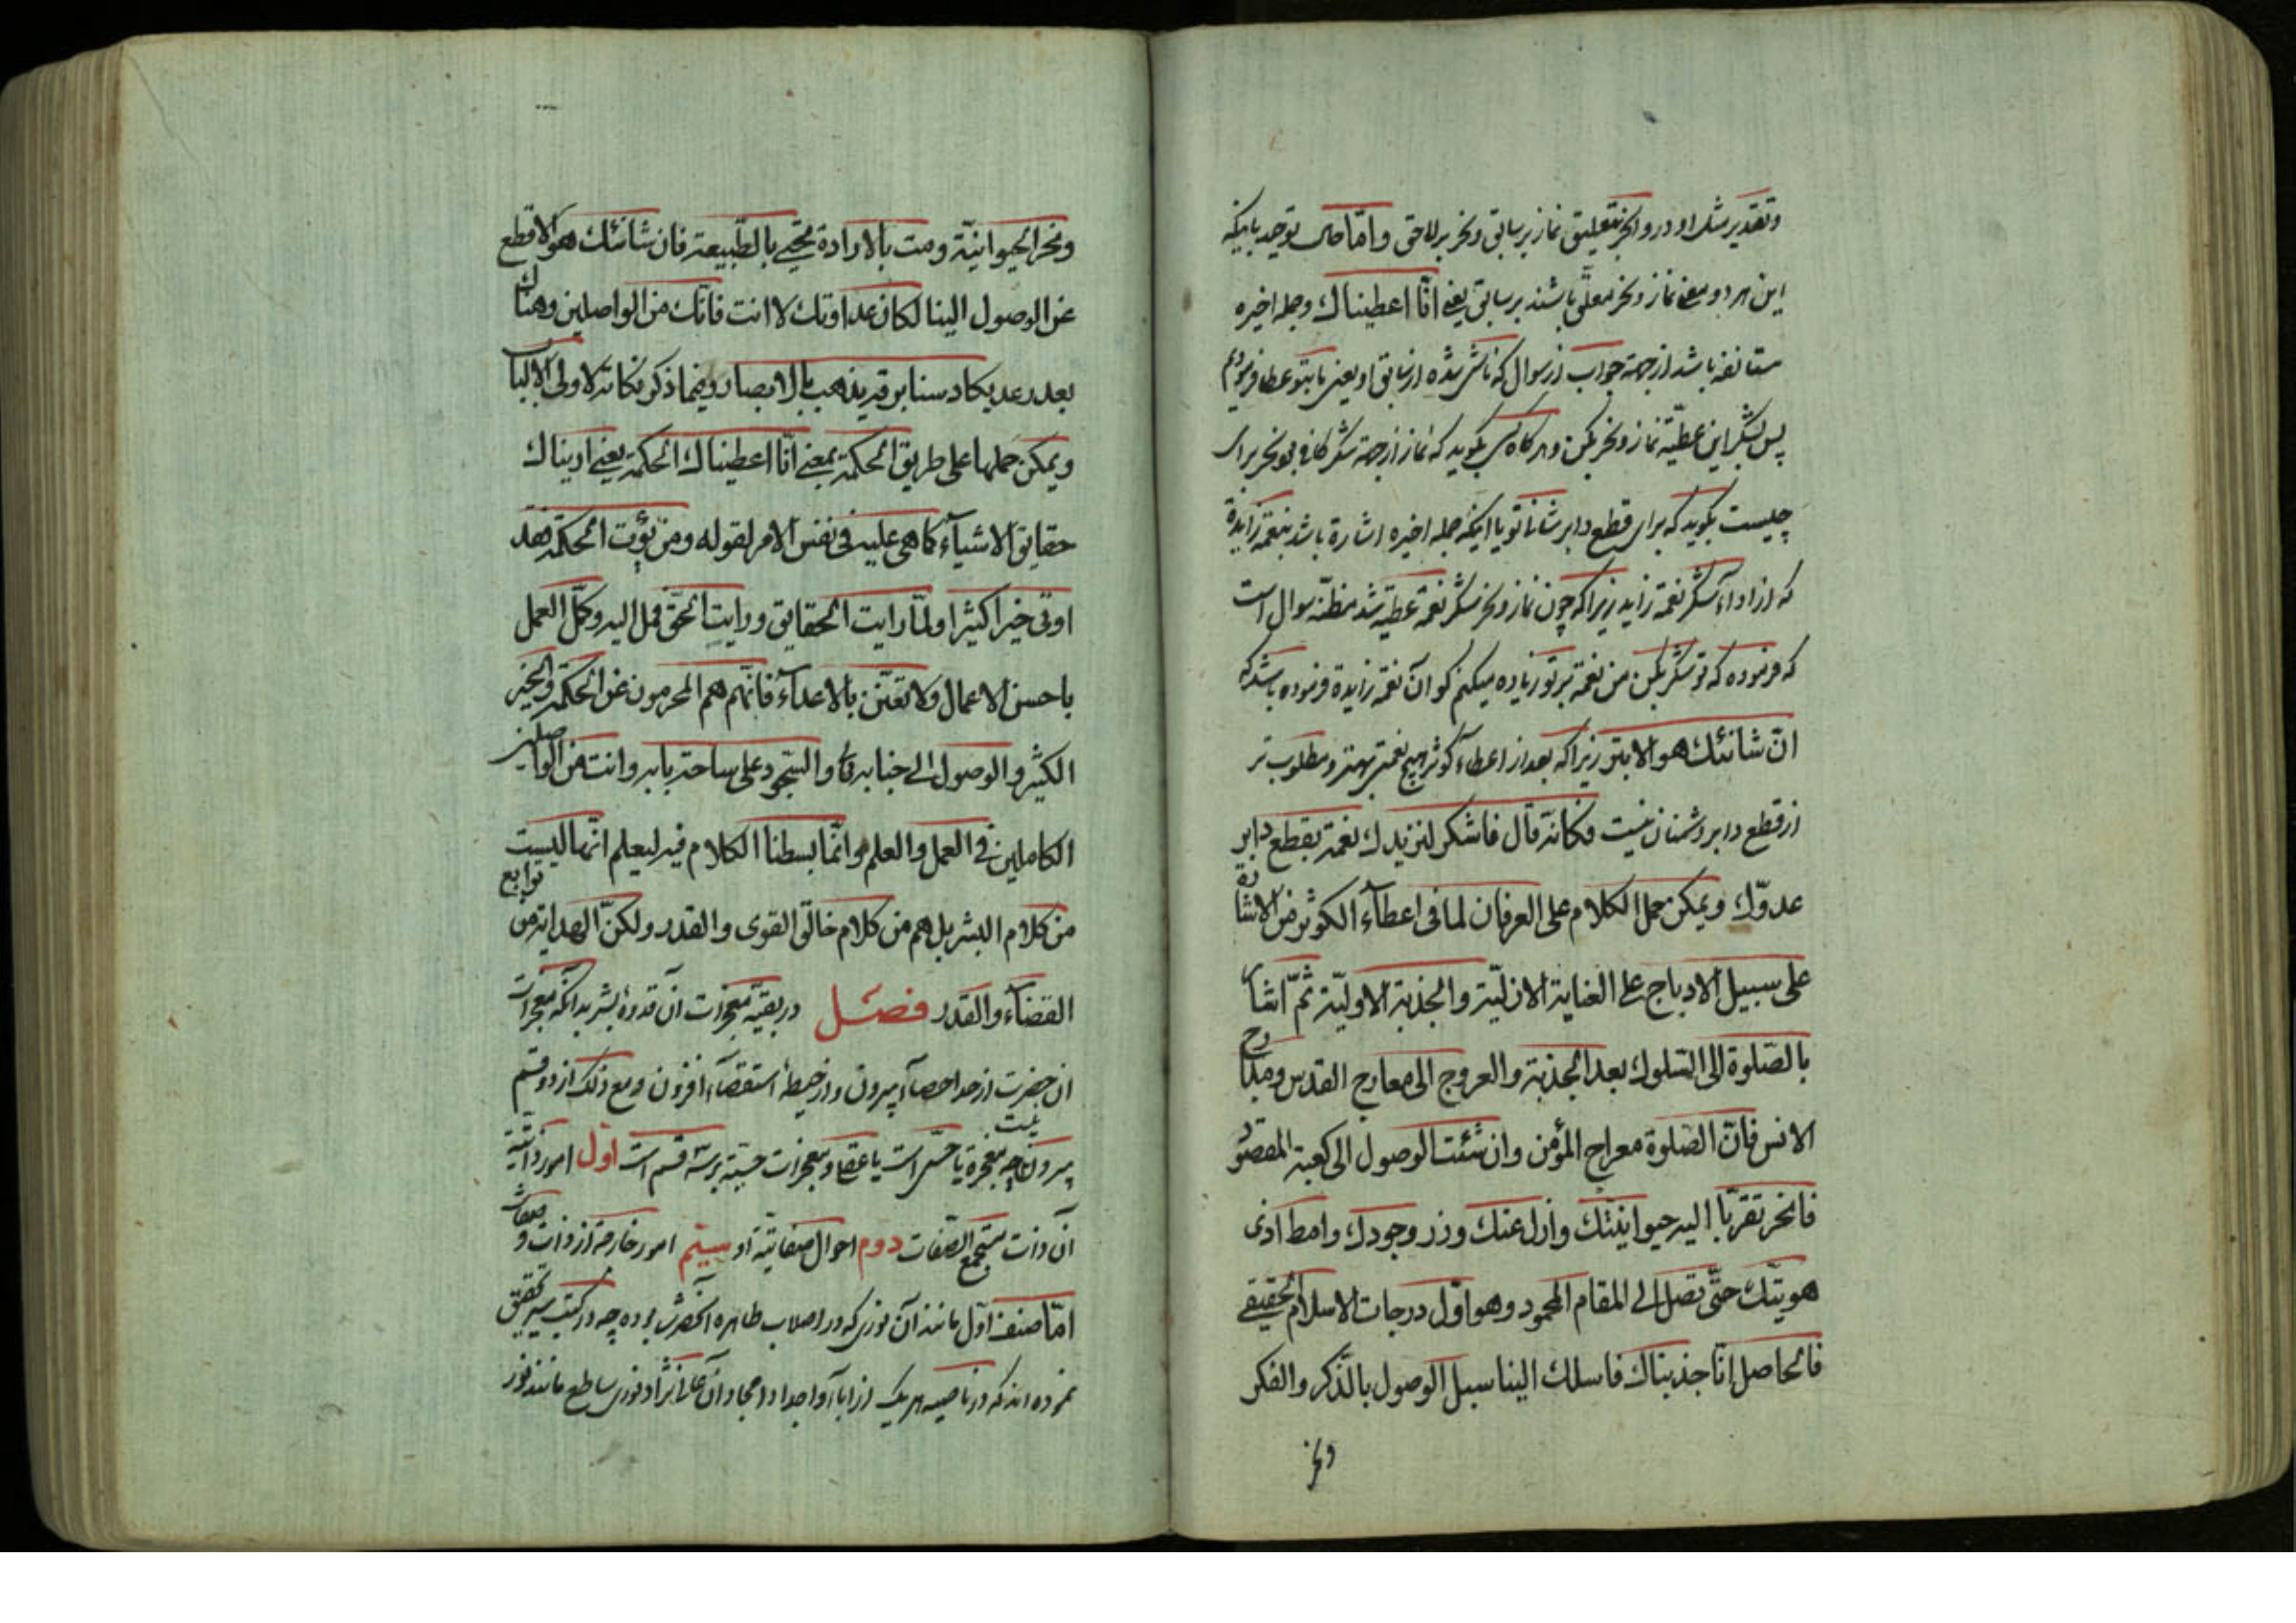 وتقدیر مثل او در وانحر بتعلیق نماز بر سابق ونحر بر لاحق واما حاصل توحید باینکه
این هر دو یعنی نماز ونحر معلق باشند بر سابق یعنی انّا اعطیناك وجمله اخیره
مستانفه باشد از جهة جواب از سوال که ناشی شده از سابق او یعنی ما بتو عطا فرمودیم
پس بشکر این عطیّه نماز ونحر بکن وهر کاه کسی بکوید که نماز از جهة شکر کافی بود نحر برای
چیست بکوید که برای قطع دابر شانئ تو یا اینکه جمله اخیره اشارة باشد بنعمة زایدة
که از اداء شکر نعمة زاید زیرا که چون نماز ونحر شکر نعمة عطیّه شد مظنّه سوال است
که فرموده که تو شکر بکن من نعمة بر تو زیاده میکنم کو آن نعمة زایدة فرموده باشد که
انّ شانئك هو الابتر زیرا که بعد از اعطاء کوثر هیچ نعمتی بهتر ومطلوب تر
از قطع دابر دشمنان نیست فکانّه قال فاشکر لنزیدك نعمة بقطع دابر
عدوّك ویمکن حمل الکلام علی العرفان لما فی اعطآء الکوثر من الاشارة
علی سبیل الادباج علی العنایة الازلیّة والجذبة الاولیّة ثمّ اشار
بالصّلوة الی السّلوك بعد الجذبة والعروج الی معارج القدس ومدارج
الانس فانّ الصّلوة معراج المؤمن وان شئت الوصول الی کعبة المقصود
فانحر تقرّبا الیه حیوانیتك وازل عنك وزر وجودك وامط اذی
هویتك حتّی تصل الی المقام المحمود وهو اوّل درجات الاسلام الحقیقی
فالحاصل انّا جذبناك فاسلك الینا سبل الوصول بالذّکر والفکر
ونحر
ونحر الحیوانیّة ومت بالارادة تحیی بالطّبیعة فان شانئك هو الاقطع
عن الوصول الینا لکان عداوتك لا انت فانّك من الواصلین وهناك
بعد رعد یکاد سنا برقه یذهب بالابصار وفیما ذکر نکاته لاولی الالباب
ویمکن حملها علی طریق الحکمة بمعنی انّا اعطیناك الحکمة یعنی اریناك
حقایق الاشیآء کما هی علیه فی نفس الامر لقوله ومن یؤت الحکمة فقد
اوتی خیرا کثیرا ولمّا رایت الحقایق ورایت الحقّ فمل الیه وکمّل العمل
باحسن الاعمال ولا تعتن بالاعدآء فانّهم هم المحرمون عن الحکمة والخیر
الکثیر والوصول الی جنابه والسّجود علی ساحة بابه وانت من الواصلین
الکاملین فی العمل والعلم وانّما بسطنا الکلام فیه لیعلم انّها لیست
من کلام البشر بل هم من کلام خالق القوی والقدر ولکنّ الهدایة من توابع
القضآء والقدر فصل در بقیّهٔ معجزات آن قدوهٔ بشر بدانکه معجزات
ان حضرت از حد احصآء بیرون واز حیطهٔ استقصآء افزون ومع ذلك از دو قسم
بیرون نیست چه معجزة یا حسّی است یا عقلی ومعجزات حسّیّه بر سه قسم است اول امور ذاتیّة
آن ذات مستجمع الصّفات دوم احوال صفاتیّه او سیّم امور خارجه از ذات وصفات
امّا صنف اوّل مانند آن نوری که در اصلاب طاهره آنحضرت بوده چه در کتب سیر تحقیق
نموده اند که در ناصیه هر یك از اباء واجداد امجاد آن عالی نژاد نوری ساطع مانند نور